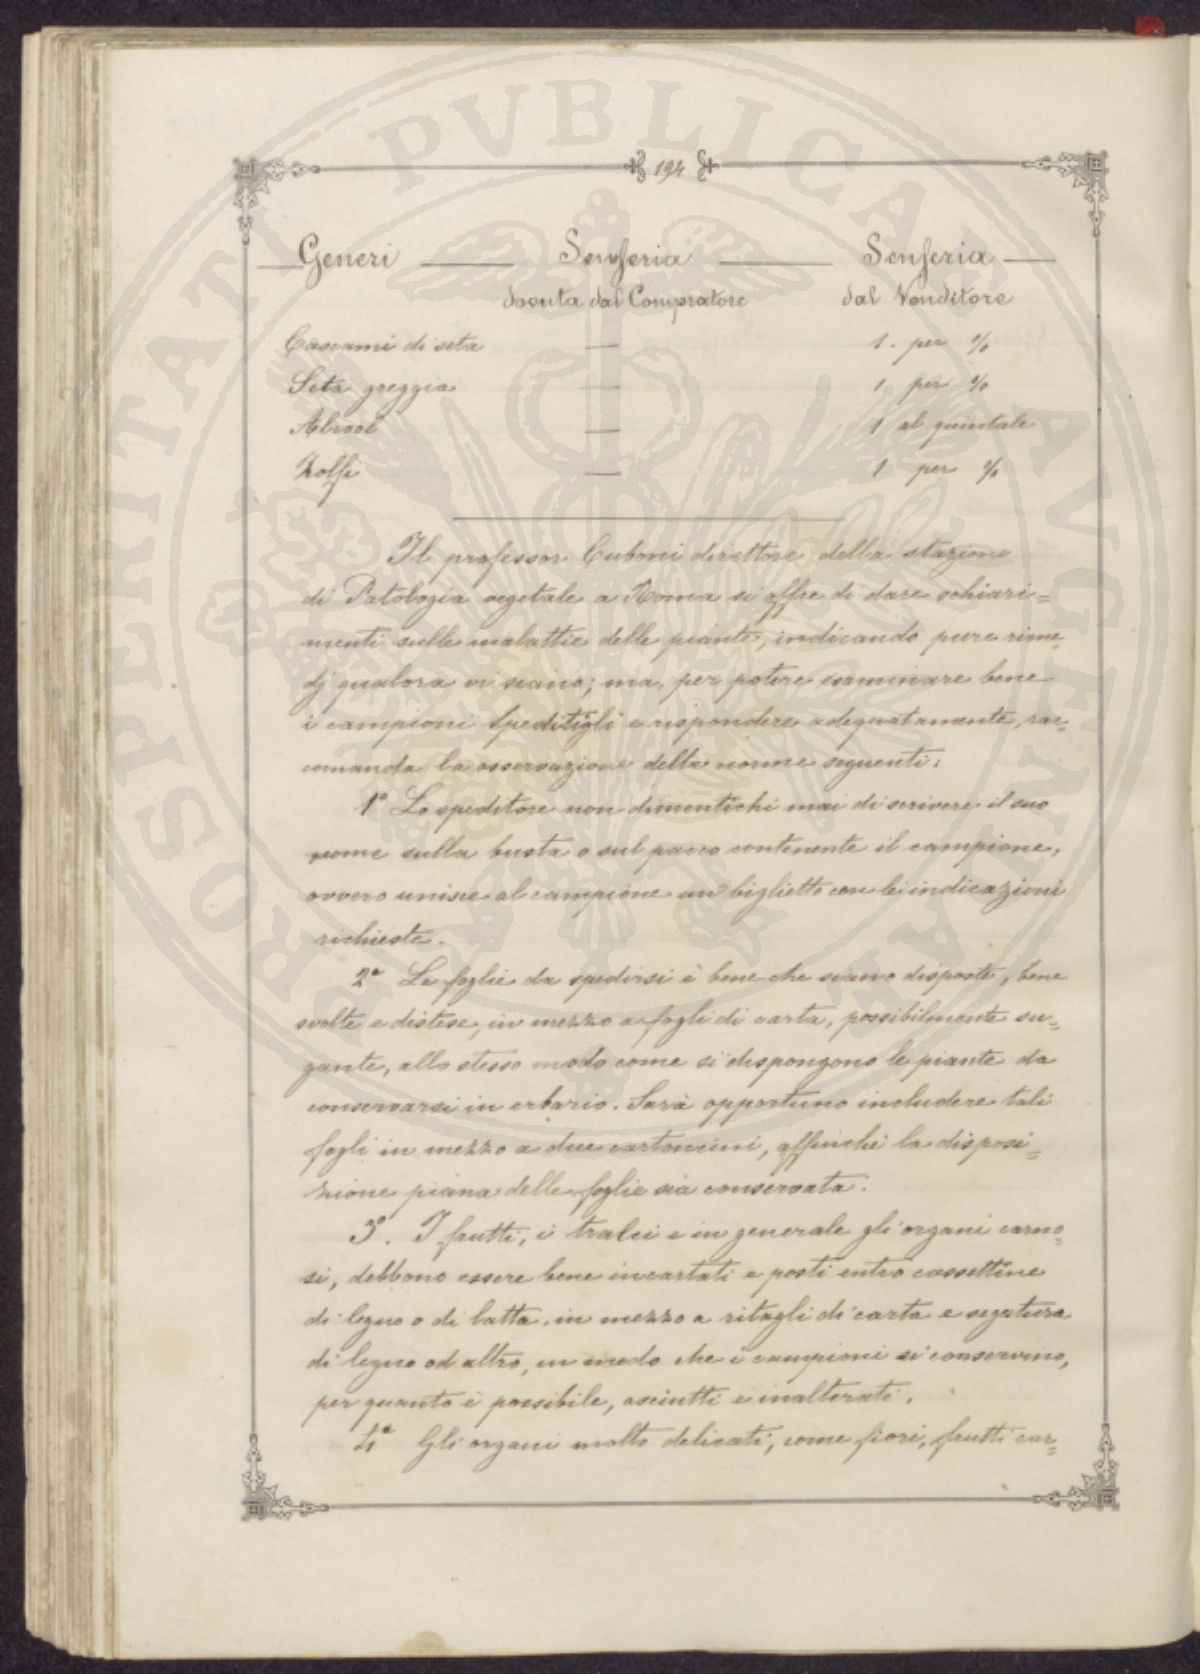 PROSPERITATI PUBLICAE AUGENDAE
194
Generi Senseria Senseria
dovuta dal Compratore dal Venditore
Cascami di seta — 1. per %
Seta greggia — 1 per %
Alcool — 1 al quintale
Zolfi — 1 per %
Il professor Cuboni direttore della stazione
di Patologia vegetale a Roma si offre di dare schiari=
menti sulle malattie delle piante, indicando pure rime=
dj qualora vi siano; ma, per potere esaminare bene
i campioni speditigli e rispondere adeguatamente, rac=
comanda la osservazione delle norme seguenti:
1° Lo speditore non dimentichi mai di scrivere il suo
nome sulla busta o sul pacco contenente il campione,
ovvero unisca al campione un biglietto con le indicazioni
richieste.
2° Le foglie da spedirsi è bene che siano disposte, bene
svolte e distese, in mezzo a fogli di carta, possibilmente su=
gante, allo stesso modo come si dispongono le piante da
conservarsi in erbario. Sarà opportuno includere tali
fogli in mezzo a due cartoncini, affinchè la disposi=
zione piana delle foglie sia conservata.
3°. I frutti, i tralci e in generale gli organi carno=
si, debbono essere bene incartati e posti entro cassettine
di legno o di latta, in mezzo a ritagli di carta e segatura
di legno od altro, in modo che i campioni si conservino,
per quanto è possibile, asciutti e inalterati.
4° Gli organi molto delicati, come fiori, frutti car=